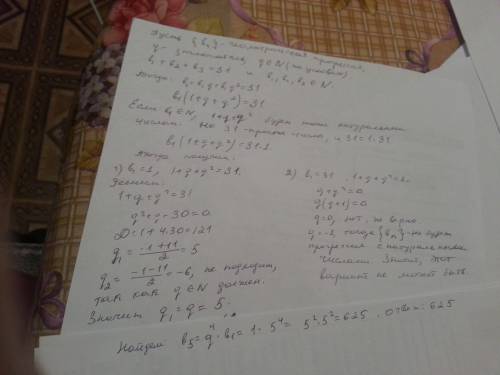 Пусть {bₙ} - геометрическая прогрессия,
q - знаменатель, q∈N (по условию)
b₁ + b₂ + b₃ = 31 и b₁, b₂, b₃ ∈ N.
Тогда: b₁ + b₁q + b₁q² = 31
b₁(1+q+q²) = 31
Если b₁∈N, 1+q+q² будет тоже натуральным
числом. Но 31 - простое число, и 31 = 1·31
b₁(1+q+q²) = 31·1.
Тогда получим:
1) b₁ = 1, 1+q+q² = 31.
Решаем:
1+q+q² = 31
q²+q-30 = 0
D = 1+4·30 = 121
q₁ = (-1+11)/2 = 5
q₂ = (-1-11)/2 = -6, не подходит,
так как q∈N должен.
Значит q₁ = q = 5.
2) b₁ = 31, 1+q+q² = 1.
q+q² = 0
q(q+1) = 0
q = 0, нет, не верно
q = -1, тогда {bₙ} - не будет
прогрессия с натуральными
числами. Значит, этот
вариант не может быть.
Найдем b₅ = q⁴·b₁ = 1·5⁴ = 5²·5² = 625. Ответ: 625